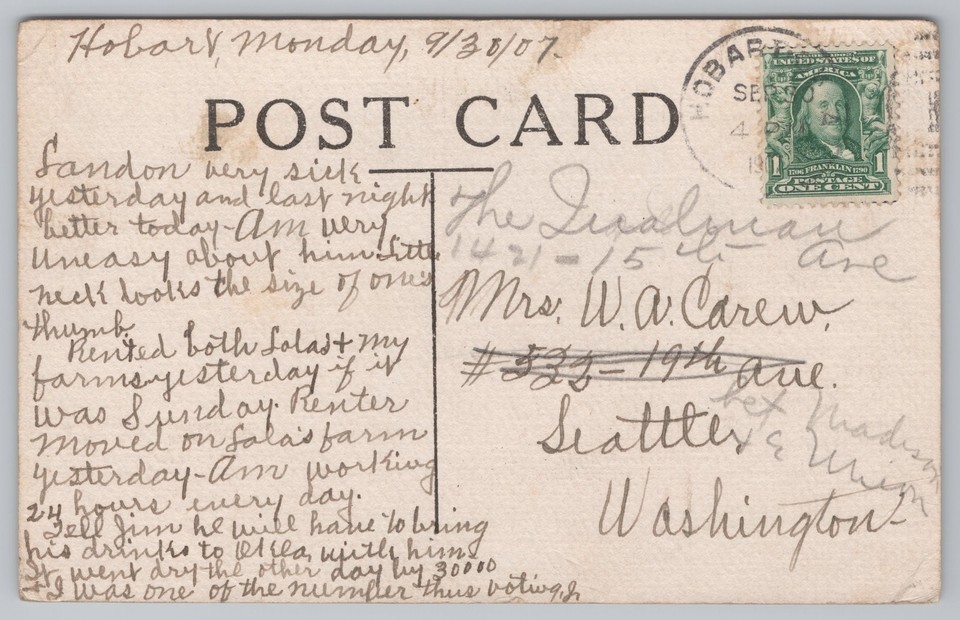 Hobart, Monday, 9/30/07.
POST CARD
HOBART
SEP 30
4
UNITED STATES OF
AMERICA
1 1706 FRANKLIN 1790 1
POSTAGE
ONE CENT
Landon very sick
yesterday and last night
better today - Am very
uneasy about him. Little
neck looks the size of one's
thumb.
Rented both Lola's + my
farms yesterday if it
was Sunday. Renter
moved on Lola's farm
yesterday - Am working
24 hours every day.
Tell Jim he will have to bring
his drinks to Okla. with him.
It went dry the other day by 30000
+ I was one of the number thus voting.
The
1421 - 15th Ave
Mrs. W. A. Carew.
# 532 - 19th Ave.
bet Madison
Seattle,
& Union
Washington